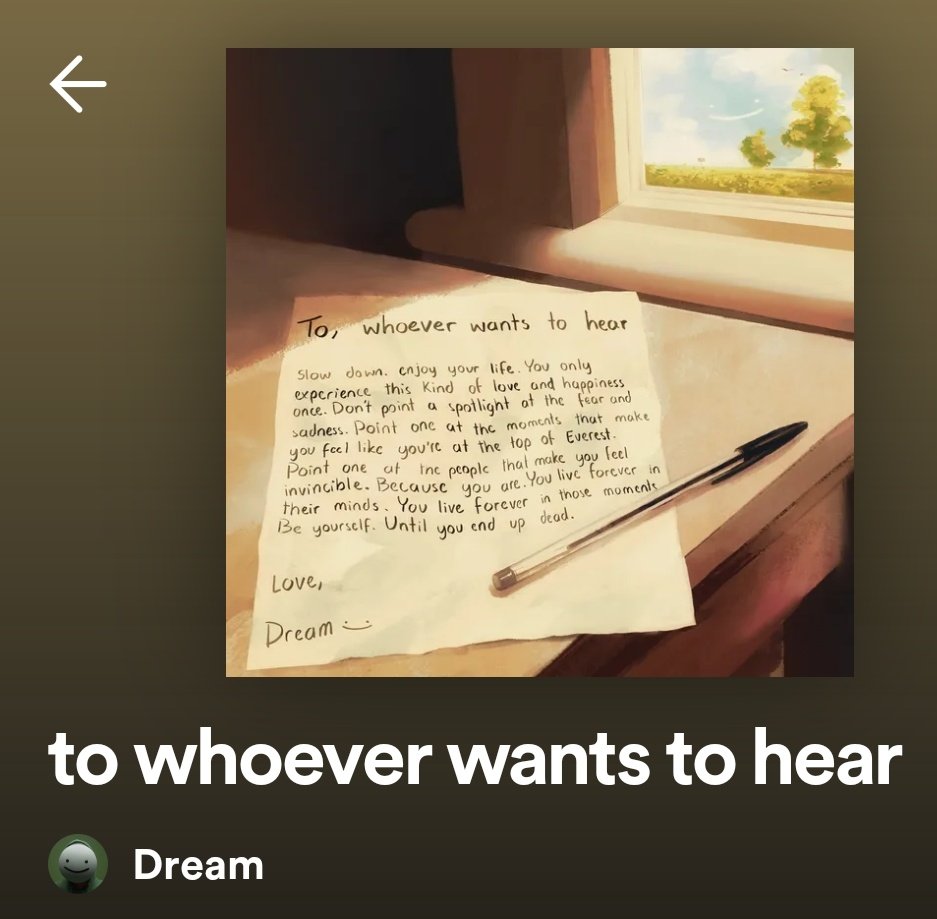 To, whoever wants to hear
Slow down. enjoy your life. You only
experience this kind of love and happiness
once. Don't point a spotlight at the fear and
sadness. Point one at the moments that make
you feel like you're at the top of Everest.
Point one at the people that make you feel
invincible. Because you are. You live forever in
their minds. You live forever in those moments.
Be yourself. Until you end up dead.
Love,
Dream :)
to whoever wants to hear
Dream